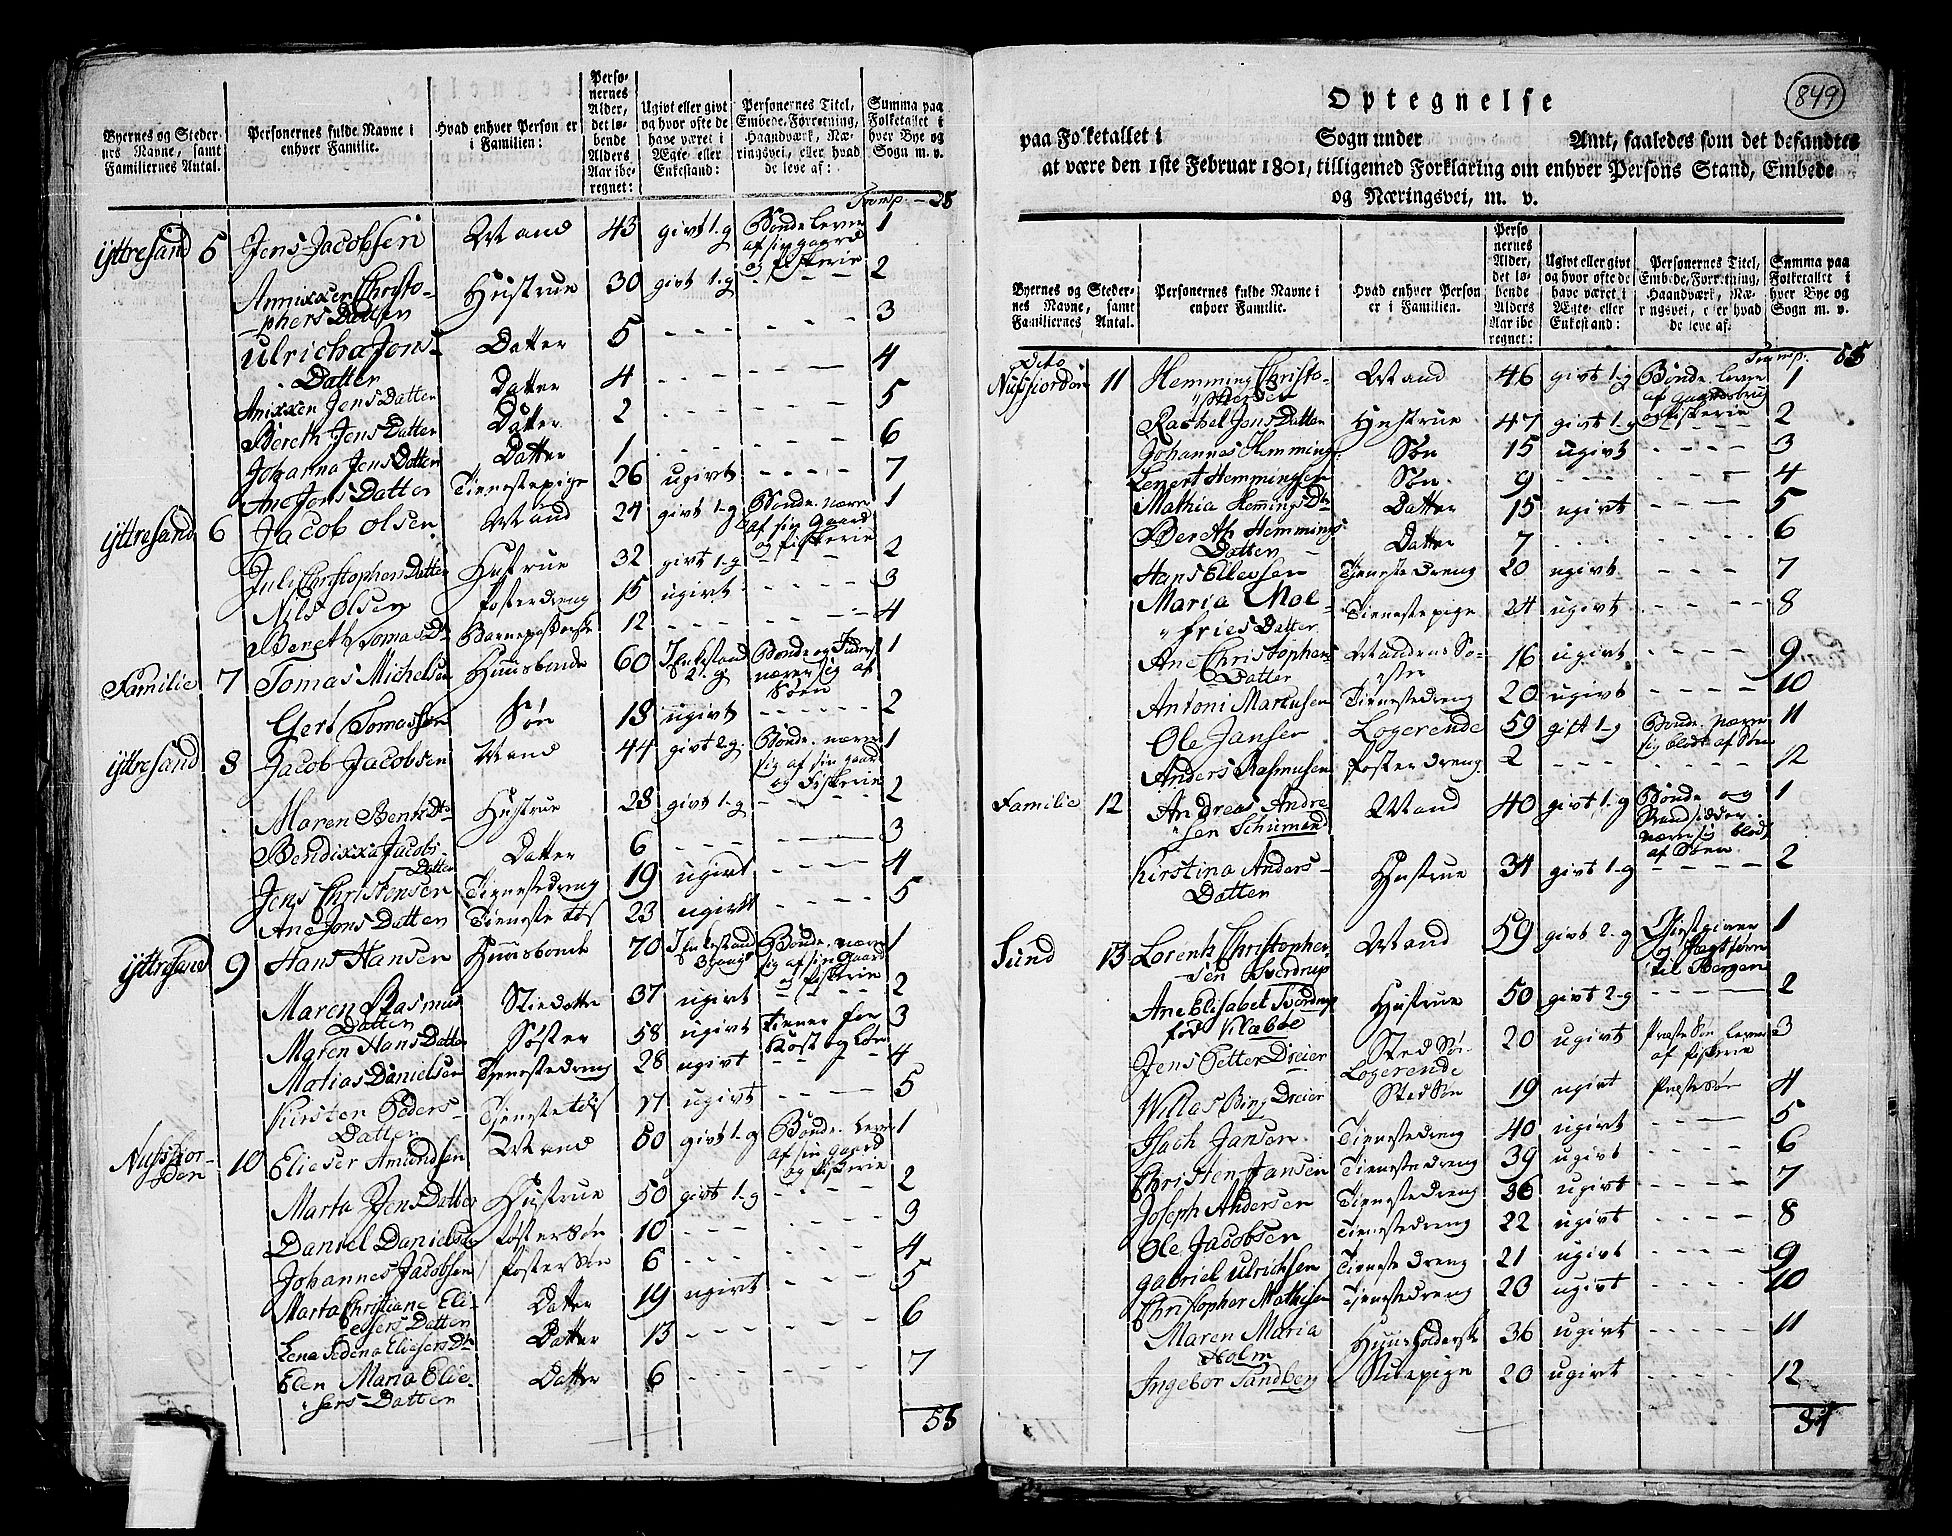 Byernes og Steder-
nes Navne, samt
Familiernes Antal.
Personernes fulde Navne i
enhver Familie.
Hvad enhver Person er
i Familien:
Perso-
nernes
Alder,
det lø-
bende
Alders
Aar ibe-
regnet:
Ugivt eller givt
og hvor ofte de
have været i
Ægte- eller
Enkestand:
Personernes Titel,
Embede, Forretning,
Haandværk, Næ-
ringsvei, eller hvad
de leve af:
Summa paa
Folketallet i
hver Bye og
Sogn m. v.
Transp. - 28
ÿttresand 5 Jens Jacobsen Mand 43 givt 1-g Bonde lever 1
af sin gaard
og fiskerie
Annixxen Christo- Hustrue 30 givt 1-g - - - 2
-phers Datter
Ulricha Jens- Datter 5 - - - - - - 3
Datter
Anixxen Jens Datter Datter 4 - - - - - - 4
Bereth Jens Datter Datter 2 - - - - - - 5
Johanna Jens Datter Datter 1 - - - - - - 6
Ane Jons Datter Tienestepige 26 ugivt - - - - 7
ÿttresand 6 Jacob Olsen Mand 24 givt 1-g Bonde. nærer 1
af sin Gaard
og fiskerie
Juli Christophers Datter Hustrue 32 givt 1-g - - - 2
Nils Olsen Fosterdreng 15 ugivt - - - - 3
Bereth Tomas Dtr Barnepasserske 12 - - - - - - 4
Familie 7 Tomas Michelsen Huusbonde 60 I Enkestand Bonde og Inderst 1
2. g nærer sig af
Søen
Gert Tomassen Søn 18 ugivt - - - - 2
ÿttresand 8 Jacob Jacobsen Mand 44 givt 2-g. Bonde. nærer 1
sig af sin gaard
og Fiskerie
Maren Bents Dtr Hustrue 28 givt 1-g - - - 2
Bendixxa Jacobs- Datter 6 - - - - - - 3
Datter
Jens Christensen Tienestedreng 19 ugivt - - - - 4
Ane Jons Datter Tieneste tøs 23 ugivt - - - - 5
ÿttresand 9 Hans Hansen Huusbonde 70 I Enkestand Bonde. nærer 1
3 gang sig af sin Gaard
og fiskerie
Maren Rasmus Stiedatter 37 ugivt - - - - 2
Datter
Maren Hans Datter Søster 58 ugivt tiener for 3
Kost og Løn
Matias Danielsen Tjenestedreng 28 ugivt - - - 4
Kirsten Peders- Tjeneste tøs 17 ugivt - - - - 5
Datter
Nussfior- 10 Elieser Amundsen Mand 50 givt 1-g Bonde. lever 1
den af sin gaard
og fiskerie
Marta Jens Datter Hustrue 50 givt 1-g - - - - 2
Daniel Danielsen Foster Søn 10 - - - - - - 3
Johannes Jacobsen Foster Søn 6 - - - - - - 4
Marta Christiane Eli- Datter 19 ugivt - - - - 5
esers Datter
Lena Sedena Eliesers Dtr Datter 13 - - - - - - 6
Elen Maria Elie- Datter 6 - - - - - - 7
sers Datter
55
849
Optegnelse
paa Folketallet i Sogn under Amt, saaledes som det befandtes
at være den 1ste Februar 1801, tilligemed Forklaring om enhver Persons Stand, Embede
og Næringsvei, m. v.
Byernes og Steder-
nes Navne, samt
Familiernes Antal.
Personernes fulde Navne i
enhver Familie.
Hvad enhver Person
er i Familien.
Perso
nernes
Alder,
det lø-
bende
Alders
Aar ibe
regnet:
Ugivt eller givt
og hvor ofte de
have været i
Ægte- eller
Enkestand:
Personernes Titel,
Embede, Forretning,
Haandværk, Næ-
ringsvei, eller hvad
de leve af:
Summa paa
Folketallet i
hver Bye og
Sogn m. v.
Transp. 55
Dito
Nussfiorden 11 Hemming Christo- Mand 46 givt 1-g Bonde. lever 1
phersen af gaardsbrug
Rachel Jons Datter Hustrue 47 givt 1-g og fiskerie 2
Johannes Hemmings: Søn 15 ugivt - - - - 3
Lenert Hemmingsen Søn. 9 - - - - - - 4
Mathia Hemmings Dtr Datter 15 ugivt - - - - 5
Bereth Hemmings Datter 7 - - - - - - 6
Datter
Hans Ellevsen Tjenestedreng 20 ugivt - - - - 7
Maria Mol- Tienestepige 24 ugivt - - - - 8
fries Datter
Ane Christophers Mandens Sø- 16 ugivt - - - - 9
Datter ster
Antoni Markusen Tienestedreng 20 ugivt - - - - 10
Ole Jansen Logerende 59 gift 1-g Bonde. nærer 11
sig blot af Søen
Anders Rasmusen Fosterdreng. 2 - - - - - - 12
Familie 12 Andreas Andre Mand 40 givt 1-g Bonde og 1
sen Schumand Strandsidder
nærer sig blot
af Søen.
Kirstina Anders- Hustrue 34 givt 1-g - - - - 2
Datter
Sund 13 Lorents Christopher- Mand 59 givt 2-g Giestgiver 1
sen Sverdrup og Jægtfører
til Bergen
Ane Elisabet Sverdrup Hustrue 50 givt 2-g - - - - 2
fød Klæbøe
Jens Petter Dreier Sted Søn 20 ugivt Præste Søn lever 3
Logerende af fiskerie
Willas Bing Dreier Sted Søn 19 ugivt Præste Søn 4
Isach Jansen. Tienestedreng 40 ugivt - - - - 5
Christen Jansen Tienestedreng 39 ugivt - - - - 6
Joseph Andersen Tienestedreng 36 ugivt - - - - 7
Ole Jacobsen Tienestedreng 22 ugivt - - - - 8
Gabriel Ulrichsen Tienestedreng 21 ugivt - - - - 9
Christopher Mathisen Tjenestedreng 20 ugivt - - - - 10
Maren Maria Huusholderske 36 ugivt - - - - 11
Holm
Ingebor Sandberg Stuepige 20 ugivt - - - - 12
81